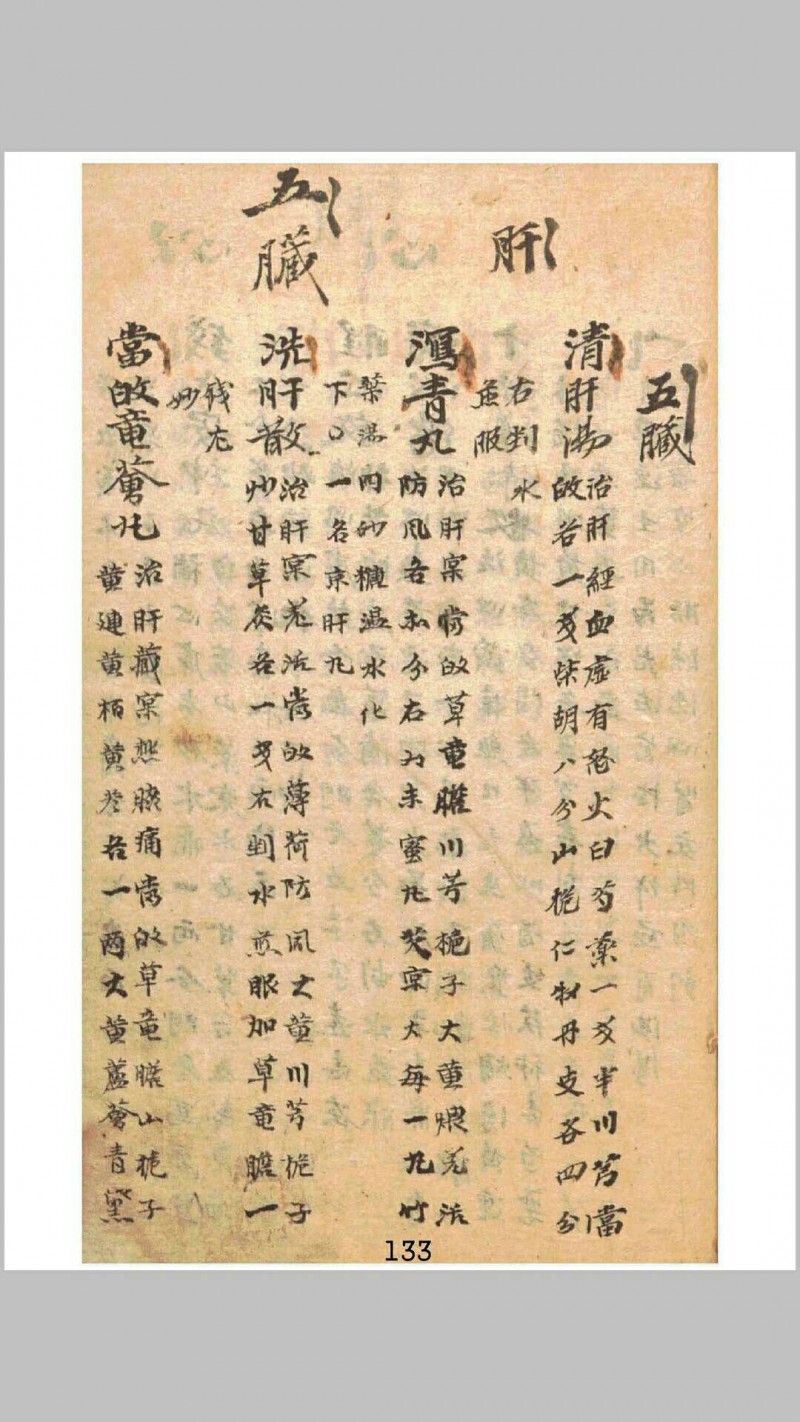 肝
五臟
五臟
清肝湯
治肝經血虛有怒火白芍藥一戔半川芎當
皈各一戔柴胡八分山梔仁牡丹皮各四分
右剉水
煎服
瀉青丸
治肝實當皈草龍膽川芎梔子大黃煨羌活
防風各ホ分右為末蜜丸芡實大每一丸竹
葉湯同砂糖温水化
下〇一名凉肝丸
洗肝散
治肝實羌活當皈薄荷防風大黃川芎梔子
炒甘草灸各一戔右剉水煎服加草龍膽一
戔尤
妙
當皈龍薈丸
治肝臟實熱脇痛當皈草龍膽山梔子
黃連黃栢黃芩各一兩大黃蘆薈青黛
133